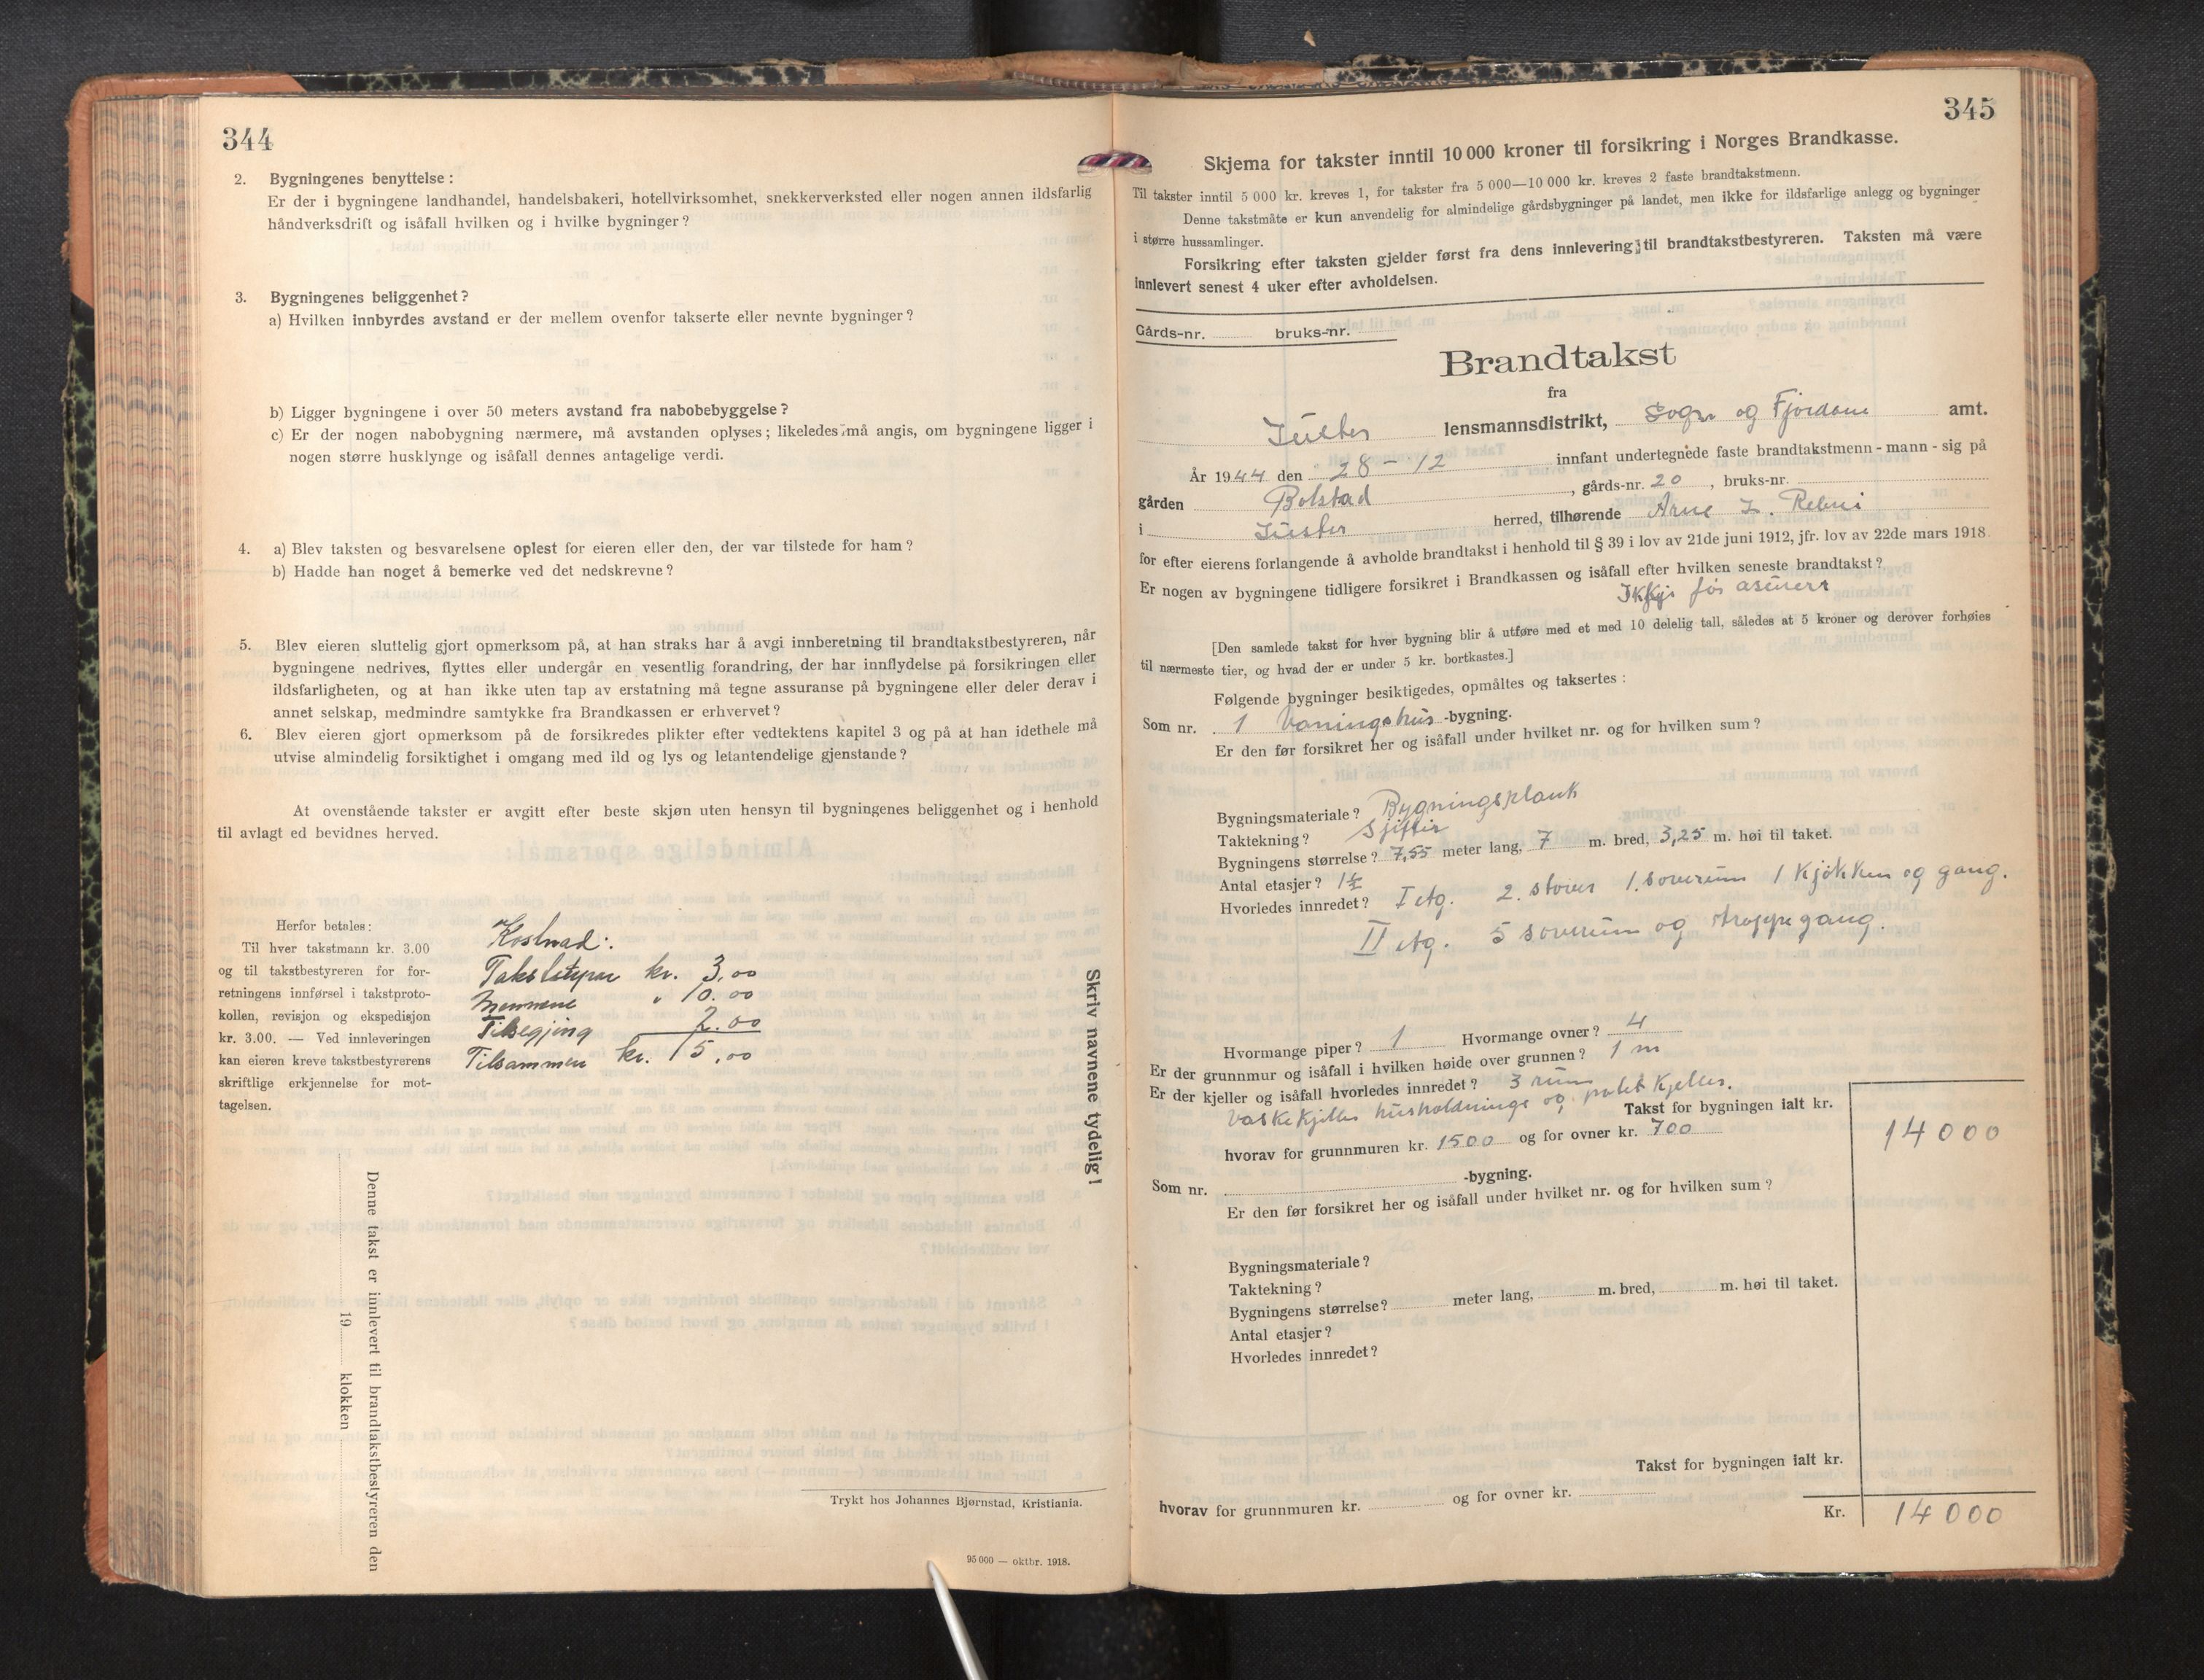 344
2. Bygningenes benyttelse :
Er der i bygningene landhandel, handelsbakeri, hotellvirksomhet, snekkerverksted eller nogen annen ildsfarlig
håndverksdrift og isåfall hvilken og i hvilke bygninger ?
3. Bygningenes beliggenhet ?
a) Hvilken innbyrdes avstand er der mellem ovenfor takserte eller nevnte bygninger ?
b) Ligger bygningene i over 50 meters avstand fra nabobebyggelse ?
c) Er der nogen nabobygning nærmere, må avstanden oplyses ; likeledes må angis, om bygningene ligger i
nogen større husklynge og isåfall dennes antagelige verdi.
4. a) Blev taksten og besvarelsene oplest for eieren eller den, der var tilstede for ham ?
b) Hadde han noget å bemerke ved det nedskrevne ?
5. Blev eieren sluttelig gjort opmerksom på, at han straks har å avgi innberetning til brandtakstbestyreren, når
bygningene nedrives, flyttes eller undergår en vesentlig forandring, der har innflydelse på forsikringen eller
ildsfarligheten, og at han ikke uten tap av erstatning må tegne assuranse på bygningene eller deler derav i
annet selskap, medmindre samtykke fra Brandkassen er erhvervet ?
6. Blev eieren gjort opmerksom på de forsikredes plikter efter vedtektens kapitel 3 og på at han idethele må
utvise almindelig forsiktighet i omgang med ild og lys og letantendelige gjenstande ?
At ovenstående takster er avgitt efter beste skjøn uten hensyn til bygningenes beliggenhet og i henhold
til avlagt ed bevidnes herved.
Herfor betales :
Til hver takstmann kr. 3.00
og til takstbestyreren for for-
retningens innførsel i takstproto-
kollen, revisjon og ekspedisjon
kr. 3.00. — Ved innleveringen
kan eieren kreve takstbestyrerens
skriftlige erkjennelse for mot-
tagelsen.
Kostnad :
kr. 3,00
Mennene " 10.00
2.00
Tilsammen kr. 15,00
Skriv navnene tydelig !
Denne takst er innlevert til brandtakstbestyreren den
19 klokken
Trykt hos Johannes Bjørnstad, Kristiania.
95 000 — oktbr. 1918.
345
Skjema for takster inntil 10 000 kroner til forsikring i Norges Brandkasse.
Til takster inntil 5 000 kr. kreves 1, for takster fra 5 000—10 000 kr. kreves 2 faste brandtakstmenn.
Denne takstmåte er kun anvendelig for almindelige gårdsbygninger på landet, men ikke for ildsfarlige anlegg og bygninger
i større hussamlinger.
Forsikring efter taksten gjelder først fra dens innlevering til brandtakstbestyreren. Taksten må være
innlevert senest 4 uker efter avholdelsen.
Gårds-nr. bruks-nr.
Brandtakst
fra
Luster lensmannsdistrikt, Sogn og Fjordane amt.
År 1944 den 28 - 12 innfant undertegnede faste brandtakstmenn - mann - sig på
gården Bolstad , gårds-nr. 20 , bruks-nr.
i Luster herred, tilhørende Arne L.
for efter eierens forlangende å avholde brandtakst i henhold til § 39 i lov av 21de juni 1912, jfr. lov av 22de mars 1918
Er nogen av bygningene tidligere forsikret i Brandkassen og isåfall efter hvilken seneste brandtakst ?
Ikkji før
[Den samlede takst for hver bygning blir å utføre med et med 10 delelig tall, således at 5 kroner og derover forhøies
til nærmeste tier, og hvad der er under 5 kr. bortkastes.]
Følgende bygninger besiktigedes, opmåltes og taksertes :
Som nr. 1 Vaningshus -bygning.
Er den før forsikret her og isåfall under hvilket nr. og for hvilken sum ?
Bygningsmateriale ? Bygningsplank
Taktekning ? Sjifer
Bygningens størrelse ? 7,55 meter lang, 7 m. bred, 3,25 m. høi til taket.
Antal etasjer ? 1½
Hvorledes innredet ? I etg. 2. stover 1. soverum 1 kjøkken og gang.
II etg. 5 soverum og troppegang.
Hvormange piper ? 1 Hvormange ovner ? 4
Er der grunnmur og isåfall i hvilken høide over grunnen ? 1 m
Er der kjeller og isåfall hvorledes innredet ? 3 rum
Vaskekjeller husholdnings og potetkjeller. Takst for bygningen ialt kr. 14000
hvorav for grunnmuren kr. 1500 og for ovner kr. 700
Som nr. -bygning.
Er den før forsikret her og isåfall under hvilket nr. og for hvilken sum ?
Bygningsmateriale ?
Taktekning ?
Bygningens størrelse ? meter lang, m. bred, m. høi til taket.
Antal etasjer ?
Hvorledes innredet ?
Takst for bygningen ialt kr.
hvorav for grunnmuren kr. og for ovner kr.
Kr. 14000